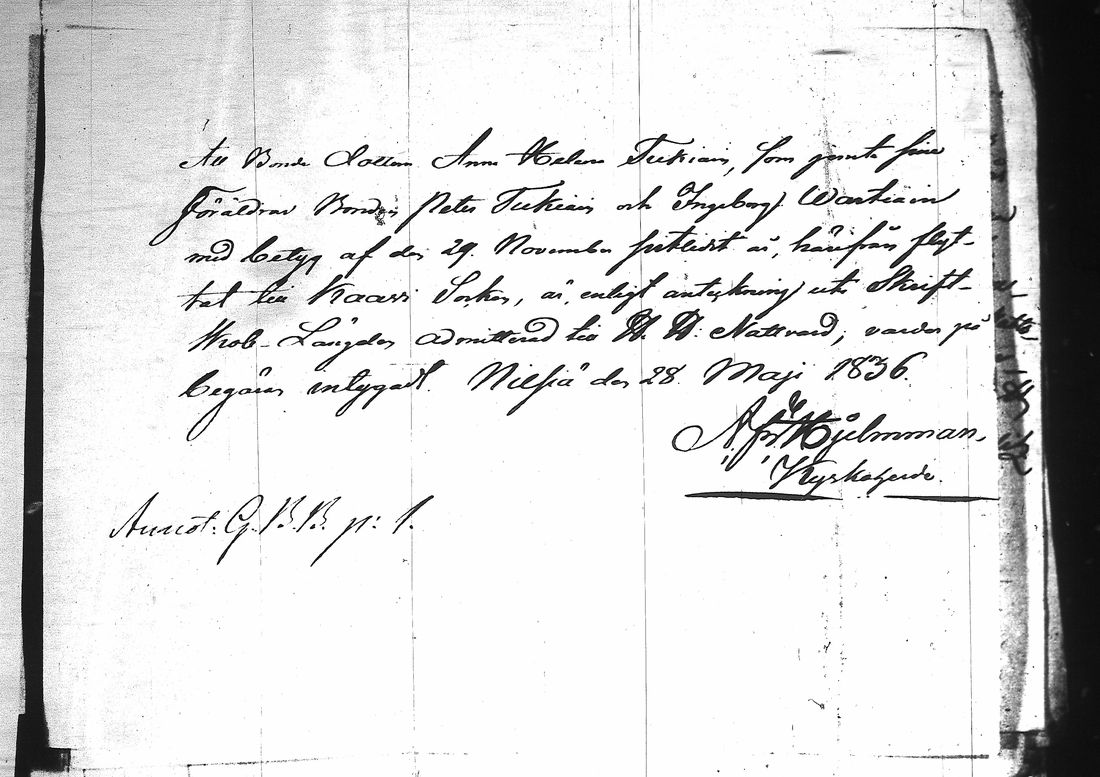 Att Bonde Dottern Anna Helena Tukiain, som jemte sine
Föräldrar Bonden Peter Tukiain och Ingeborg Wartiain
med betyg af den 29. November sistledit år, härifrån flyt-
tat till Kaavi Socken, är, enligt anteckning uti Skrift-
skols Längden admitterad till H. H. Nattvard, varder på
begäran intygadt. Nilsiä den 28. Maji 1836.
Hjelmman.
Kyrkoherde.
Annot. C. B. B. p: 1.